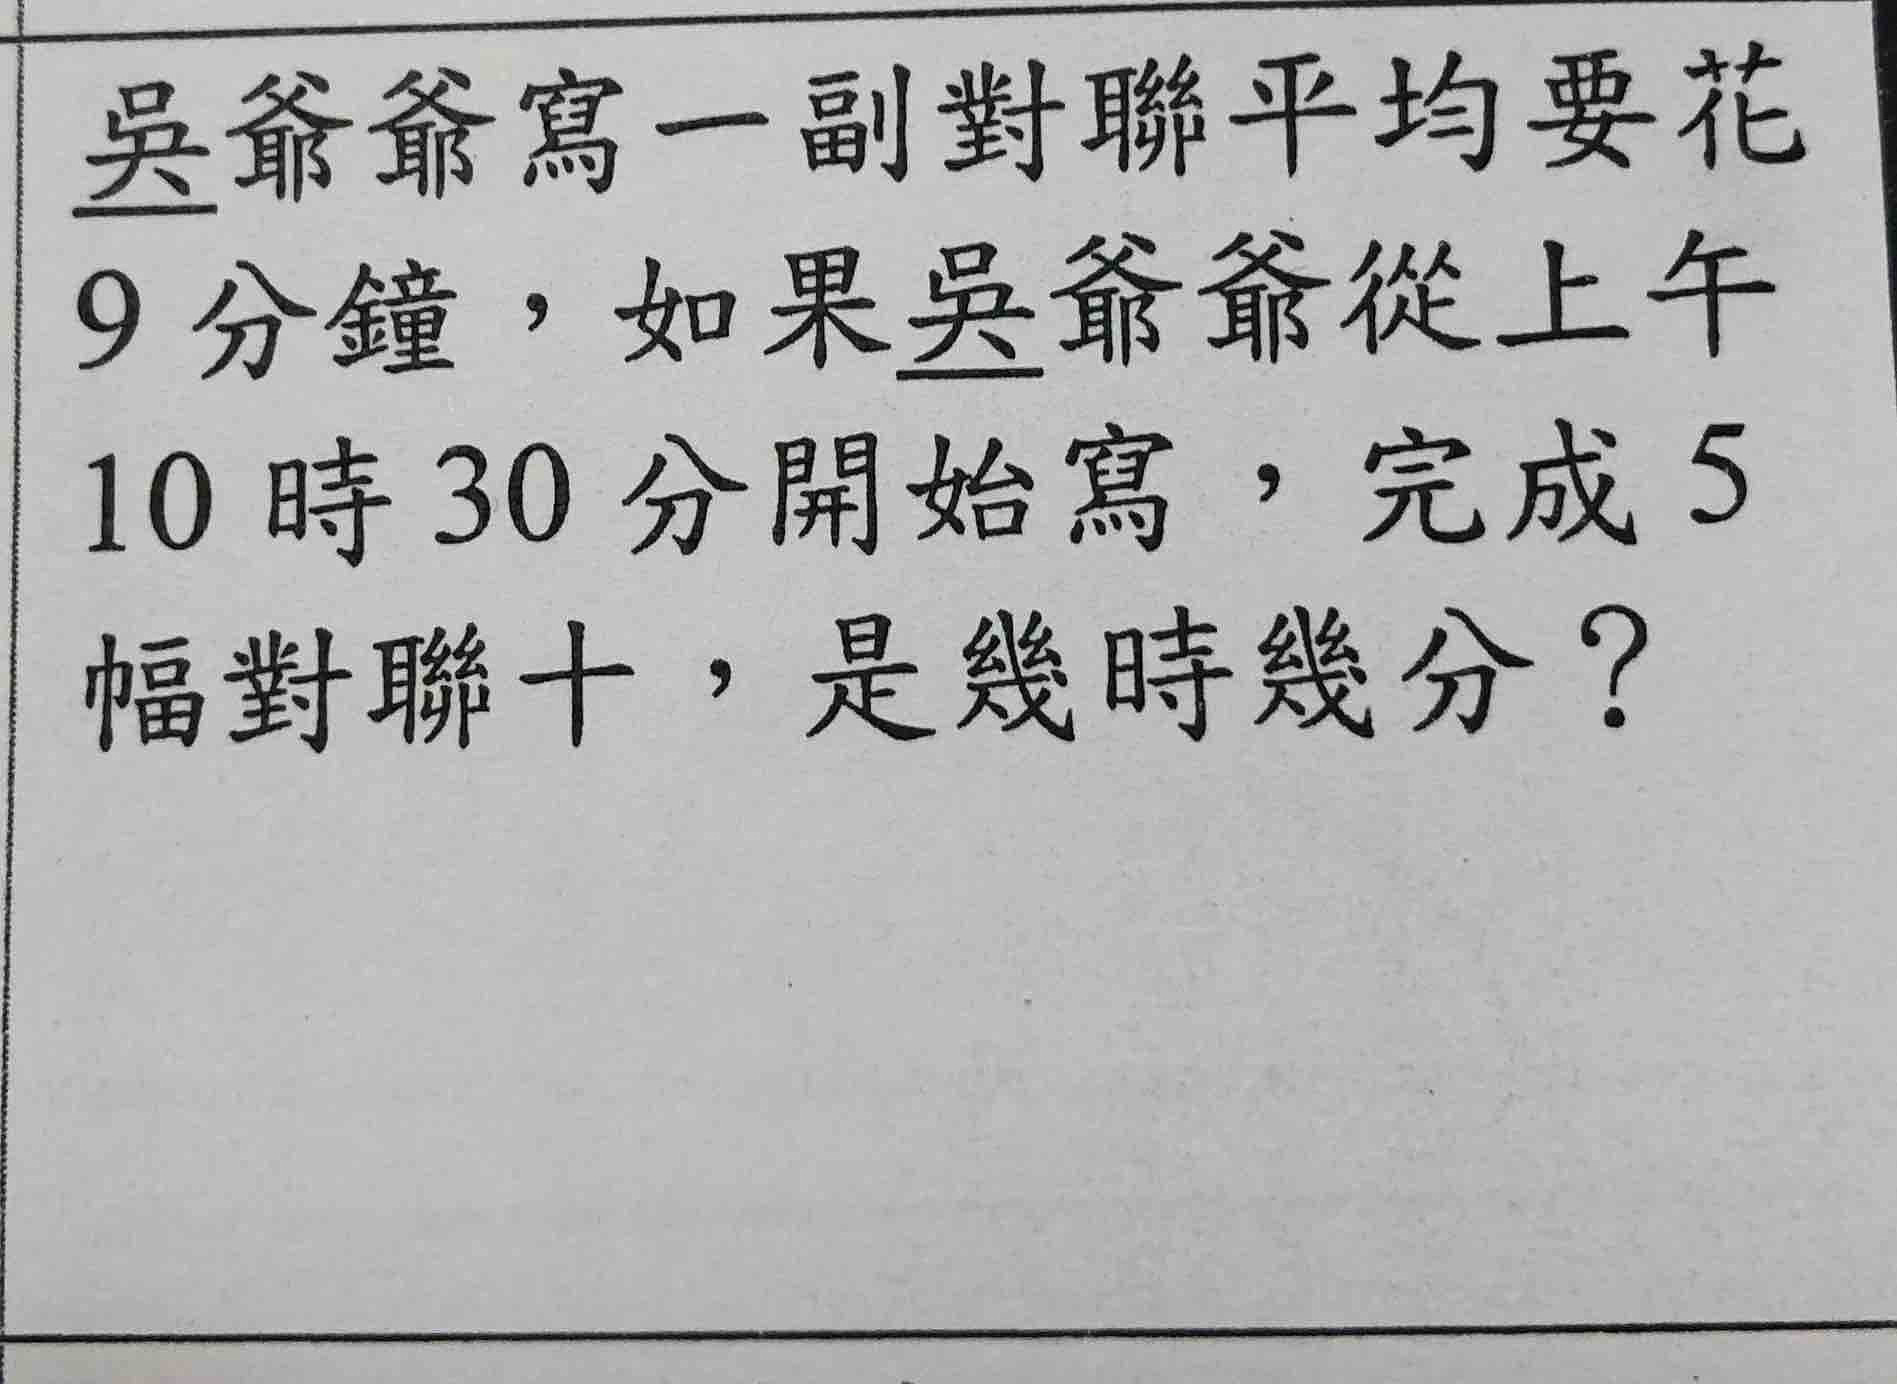 吳爺爺寫一副對聯平均要花
9分鐘，如果吳爺爺從上午
10時30分開始寫，完成5
幅對聯十，是幾時幾分？